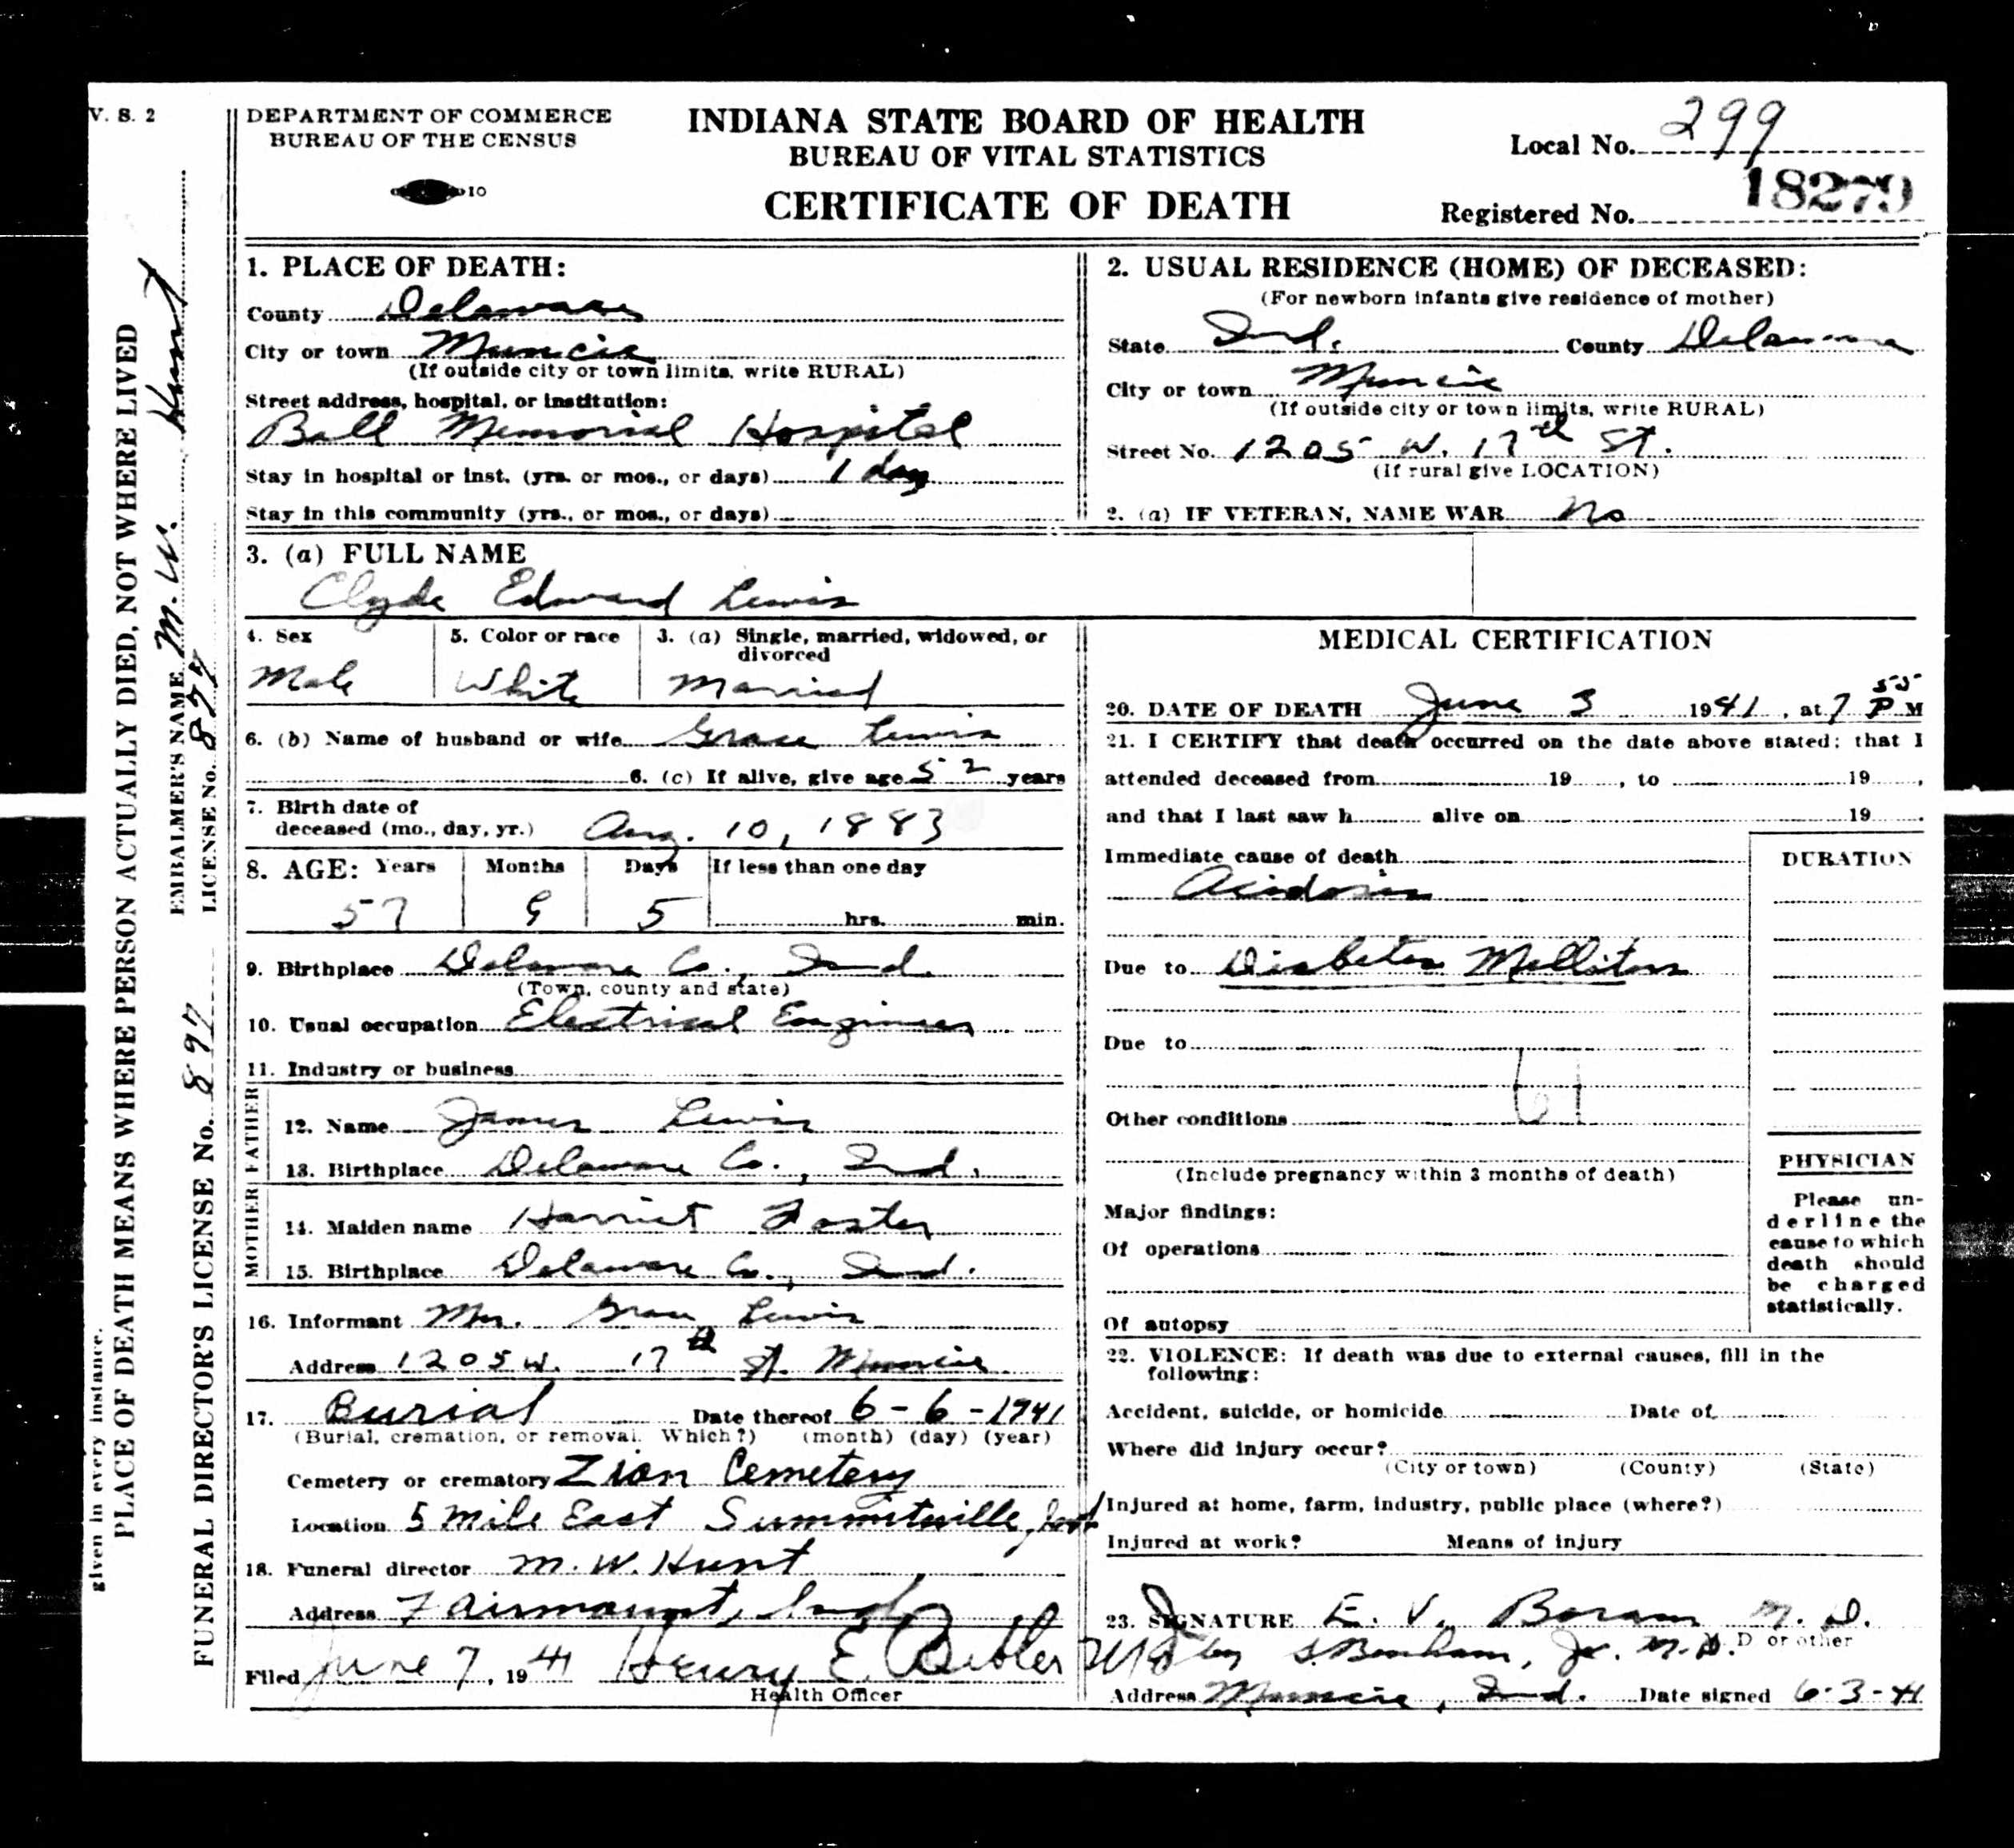 V. S. 2
DEPARTMENT OF COMMERCE
BUREAU OF THE CENSUS
10
INDIANA STATE BOARD OF HEALTH
BUREAU OF VITAL STATISTICS
CERTIFICATE OF DEATH
Local No. 299
Registered No. 18279
given in every instance.
PLACE OF DEATH MEANS WHERE PERSON ACTUALLY DIED, NOT WHERE LIVED
EMBALMER'S NAME M. W. Hunt
LICENSE No.
FUNERAL DIRECTOR'S LICENSE No. 897
1. PLACE OF DEATH:
County Delaware
City or town Muncie
(If outside city or town limits, write RURAL)
Street address, hospital, or institution:
Ball Memorial Hospital
Stay in hospital or inst. (yrs. or mos., or days) 1 day
Stay in this community (yrs., or mos., or days)
2. USUAL RESIDENCE (HOME) OF DECEASED:
(For newborn infants give residence of mother)
State Ind. County Delaware
City or town Muncie
(If outside city or town limits, write RURAL)
Street No. 1205 W. 17th St.
(If rural give LOCATION)
2. (a) IF VETERAN, NAME WAR No
3. (a) FULL NAME
Clyde Edward Lewis
4. Sex
Male
5. Color or race
White
3. (a) Single, married, widowed, or divorced
Married
6. (b) Name of husband or wife Grace Lewis
6. (c) If alive, give age 52 years
7. Birth date of
deceased (mo., day, yr.) Aug. 10, 1883
8. AGE: Years Months Days If less than one day
57 9 5 hrs. min.
9. Birthplace Delaware Co., Ind.
(Town, county and state)
10. Usual occupation Electrical Engineer
11. Industry or business
FATHER
12. Name James Lewis
13. Birthplace Delaware Co., Ind.
MOTHER
14. Maiden name Harriet Foster
15. Birthplace Delaware Co., Ind.
16. Informant Mrs. Grace Lewis
Address 1205 W. 17th St. Muncie
17. Burial Date thereof 6-6-1941
(Burial, cremation, or removal. Which?) (month) (day) (year)
Cemetery or crematory Zion Cemetery
Location 5 Mile East Summitville, Ind
18. Funeral director M. W. Hunt
Address Fairmount, Ind
Filed June 7, 1941 Henry E. Bibler MD
Health Officer
MEDICAL CERTIFICATION
20. DATE OF DEATH June 3 1941, at 7 55 P M
21. I CERTIFY that death occurred on the date above stated; that I
attended deceased from 19 , to 19 ,
and that I last saw h alive on 19 .
Immediate cause of death
Acidosis
DURATION
Due to Diabetes Mellitus
Due to
61
Other conditions
(Include pregnancy within 3 months of death)
Major findings:
Of operations
Of autopsy
PHYSICIAN
Please un-
derline the
cause to which
death should
be charged
statistically.
22. VIOLENCE: If death was due to external causes, fill in the
following:
Accident, suicide, or homicide Date of
Where did injury occur?
(City or town) (County) (State)
Injured at home, farm, industry, public place (where?)
Injured at work? Means of injury
23. SIGNATURE E. V. Boram M. D.
by Benham, Jr. M.D. D or other
Address Muncie, Ind. Date signed 6-3-41